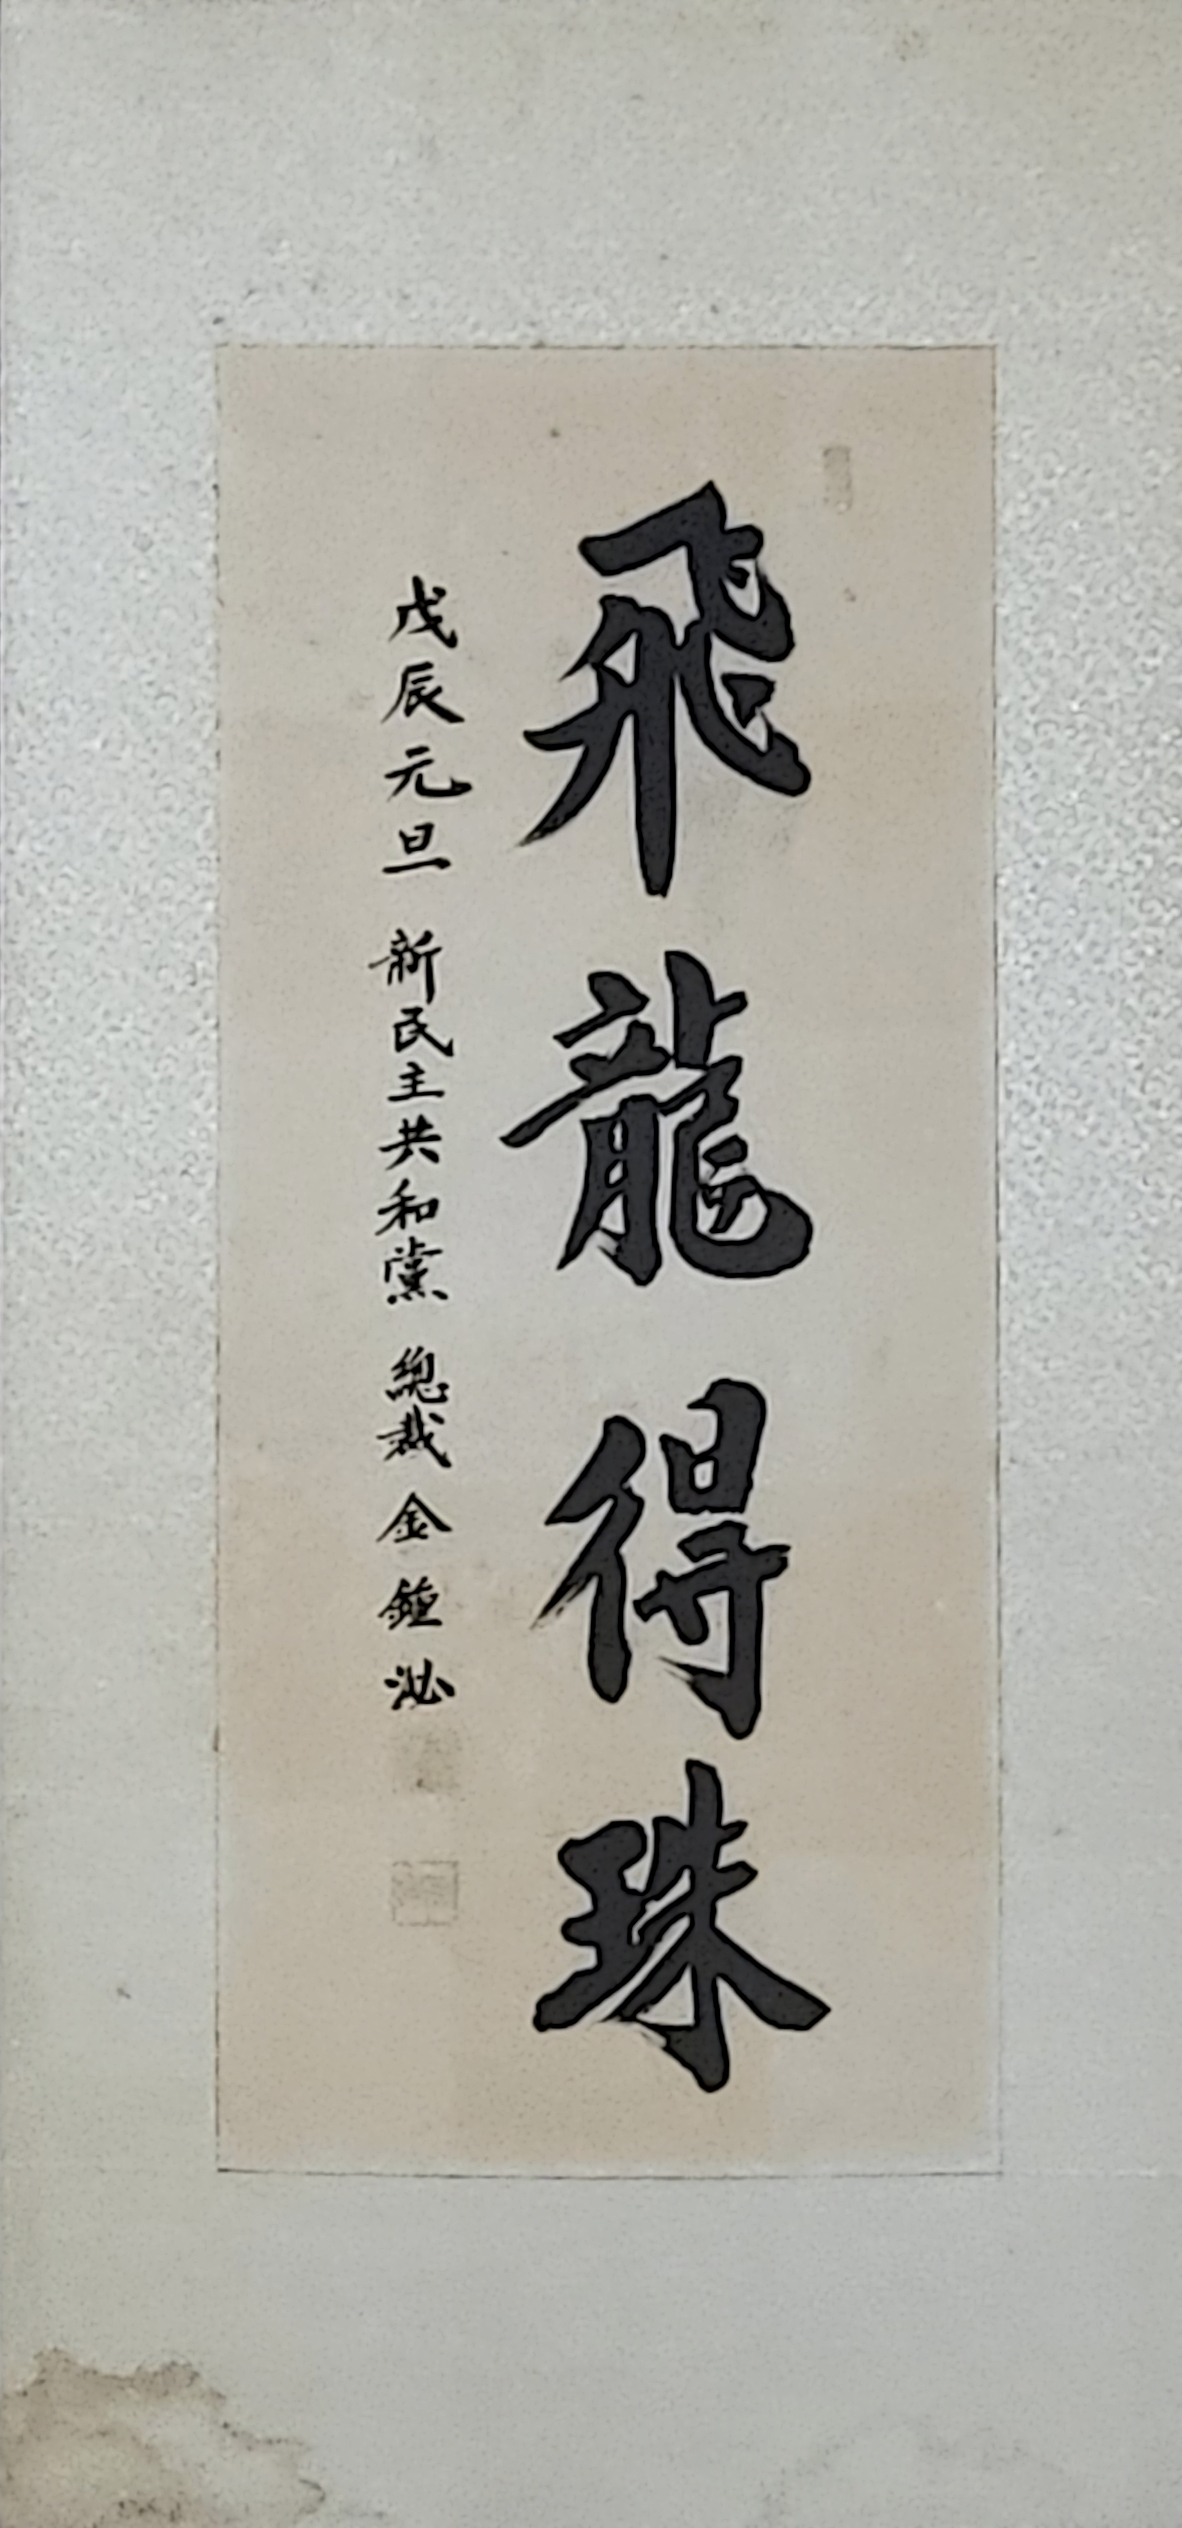 飛龍得珠
戊辰元旦 新民主共和黨 總裁 金鍾泌